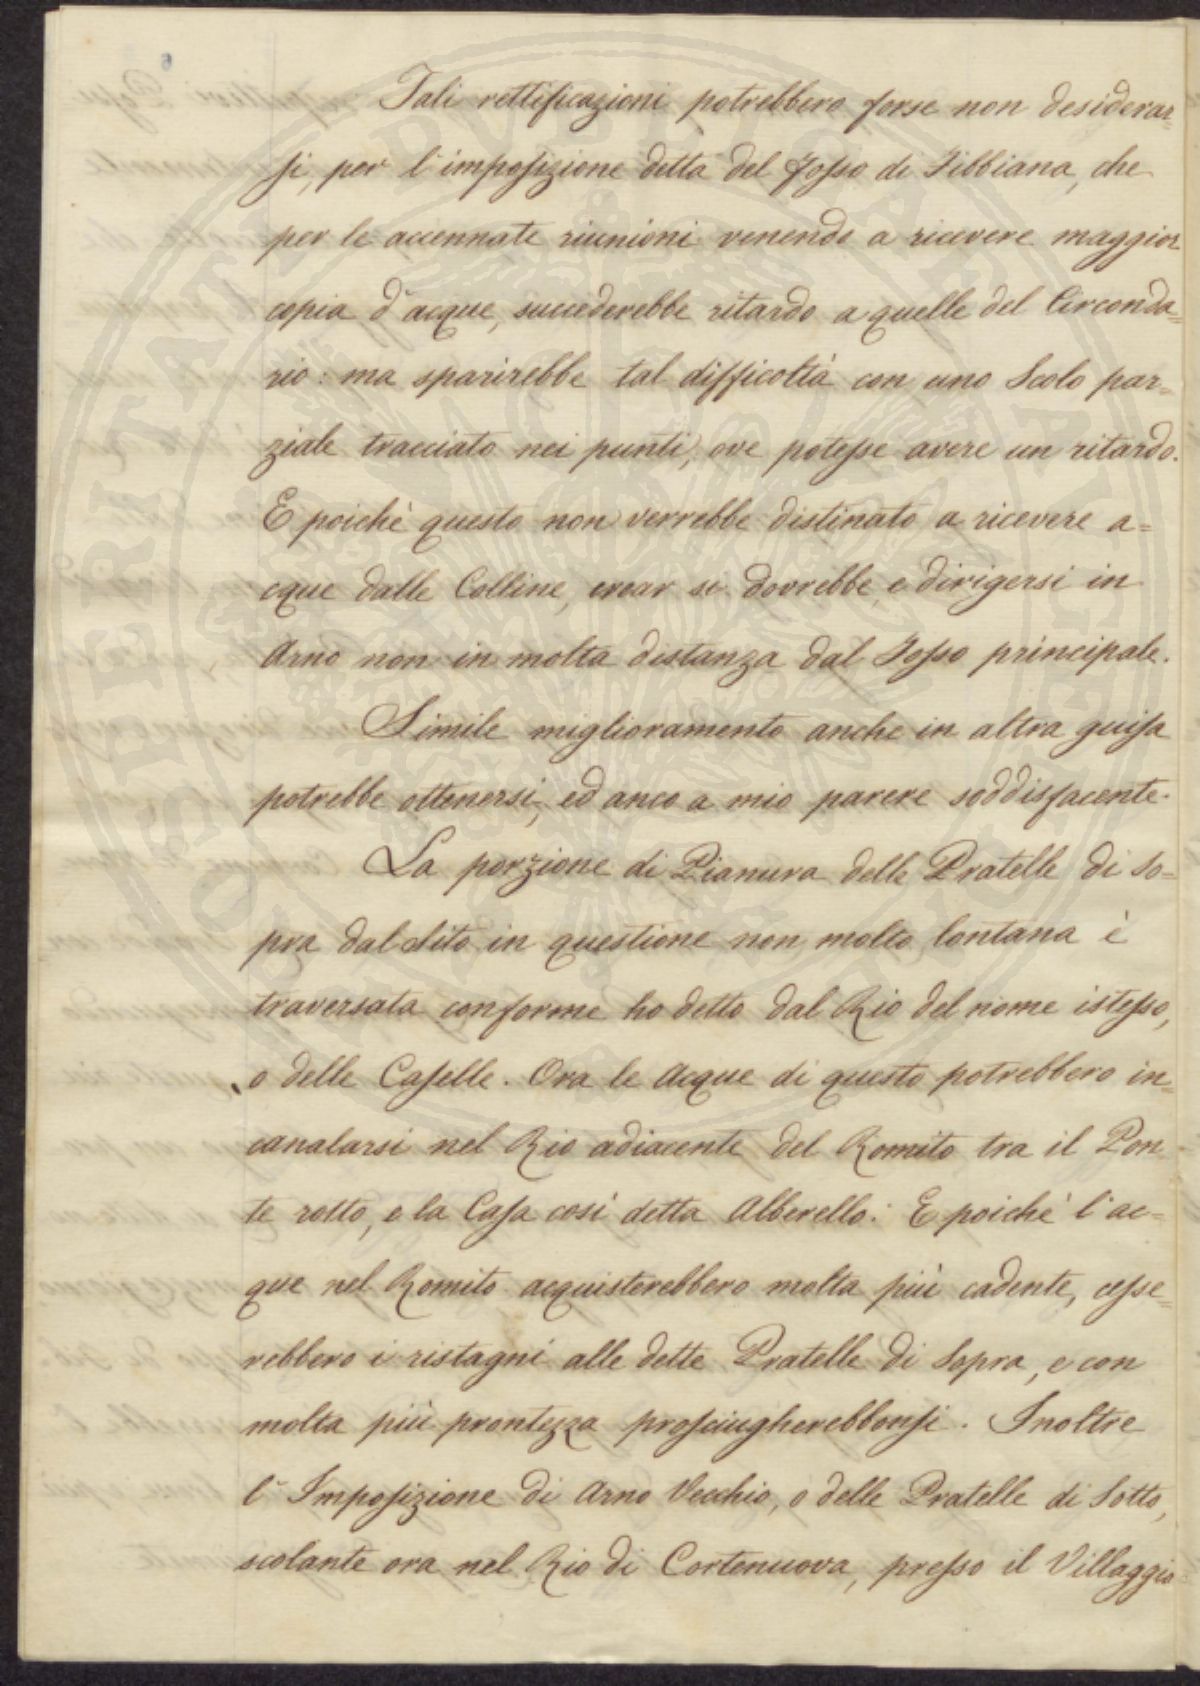 Tali rettificazioni potrebbero forse non desiderar=
si, per l'imposizione detta del Fosso di Fibbiana, che
per le accennate riunioni venendo a ricevere maggior
copia d'acque, succederebbe ritardo a quelle del Circonda=
rio: ma sparirebbe tal difficoltà con uno Scolo par=
ziale tracciato nei punti, ove potesse avere un ritardo.
E poichè questo non verrebbe distinato a ricevere a=
cque dalle Colline, crear si dovrebbe, e dirigersi in
Arno non in molta distanza dal Fosso principale.
Simile miglioramento anche in altra guisa
potrebbe ottenersi, ed anco a mio parere soddisfacente.
La porzione di Pianura delle Pratelle di So=
pra dal Sito in questione non molto lontana è
traversata conforme ho detto dal Rio del nome istesso,
o delle Caselle. Ora le Acque di questo potrebbero in=
canalarsi nel Rio adiacente del Romito tra il Pon
te rotto, e la Casa così detta Alberello: E poichè l'ac=
que nel Romito acquisterebbero molta più cadente, cesse=
rebbero i ristagni alle dette Pratelle di Sopra, e con
molta più prontezza prosciugherebbonsi. Inoltre
l'Imposizione di Arno Vecchio, o delle Pratelle di Sotto,
scolante ora nel Rio di Cortenuova, presso il Villaggio
PROSPERITATI PVBLICAE AVGENDAE